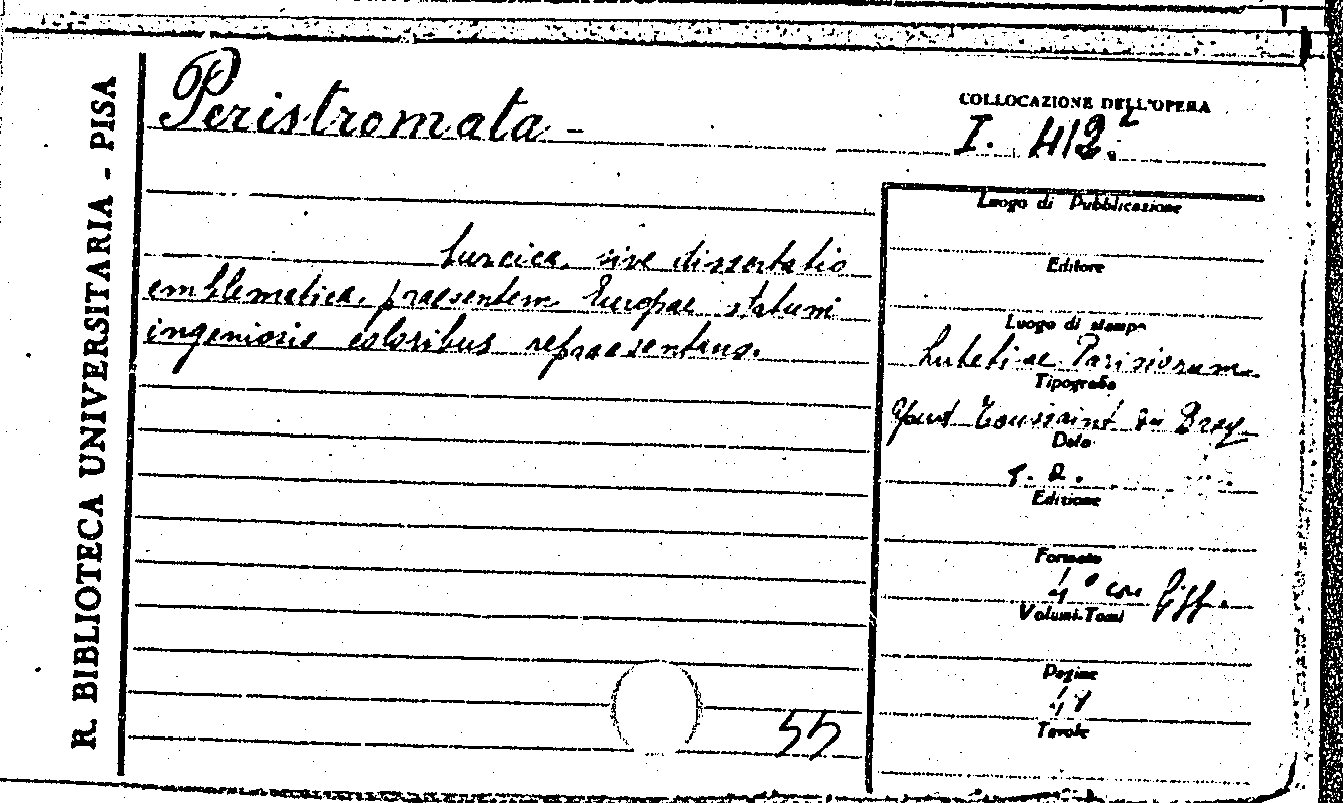 R. BIBLIOTECA UNIVERSITARIA - PISA
Peristromata -
COLLOCAZIONE DELL'OPERA
I. 412.
Luogo di Pubblicazione
turcica, sive dissertatio
emblematica, praesentem Europae statum
ingeniosis coloribus repraesentans.
Editore
Luogo di stampa
Lutetiae Parisiorum
Tipografo
apud Toussaint du Bray
Data
s. a.
Edizione
Formato
4° con figg.
Volumi-Tomi
Pagine
Tavole
55